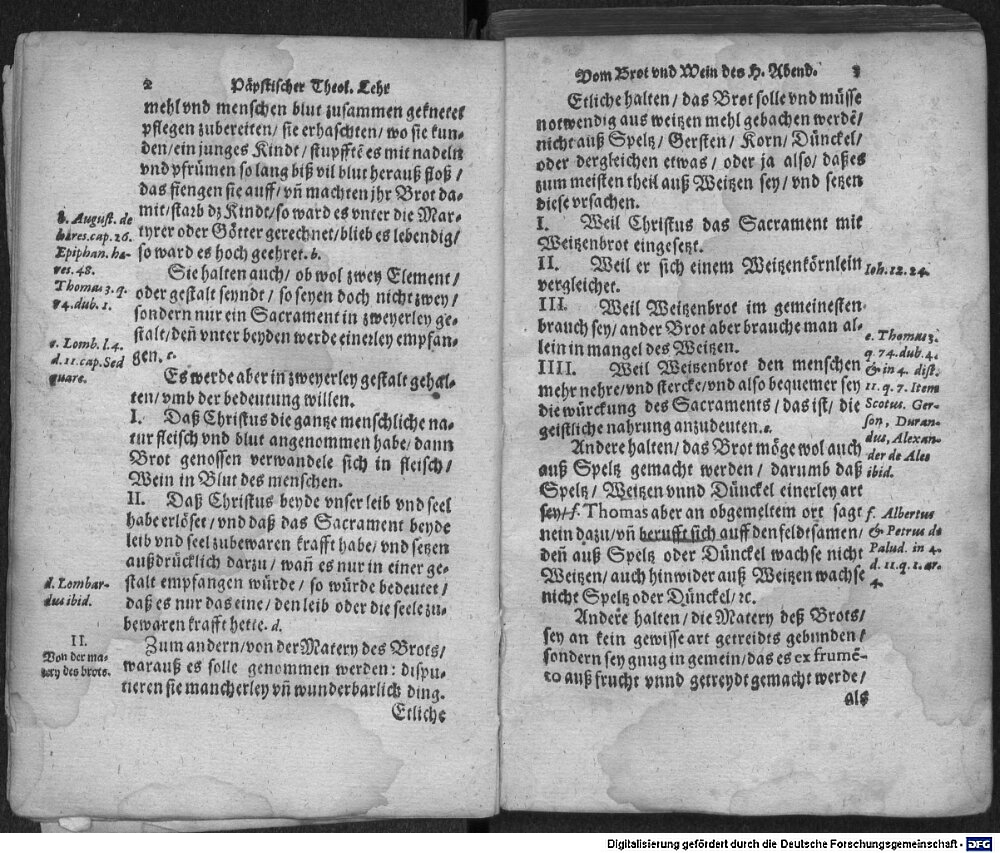 2 Päpstischer Theol. Lehr
mehl vnd menschen blut zusammen geknetet
pflegen zubereiten/ sie erhaschten/ wo sie kun-
den/ ein junges Kindt/ stupfftē es mit nadeln
vnd pfrümen so lang biß vil blut herauß floß/
das fiengen sie auff/ vñ machten jhr Brot da-
mit/ starb dz Kindt/ so ward es vnter die Mar-
tyrer oder Götter gerechnet/ blieb es lebendig/
so ward es hoch geehret. b.
Sie halten auch/ ob wol zwey Element/
oder gestalt seyndt/ so seyen doch nicht zwey/
sondern nur ein Sacrament in zweyerley ge-
stalt/ deñ vnter beyden werde einerley empfan-
gen. c.
Es werde aber in zweyerley gestalt gehal-
ten/ vmb der bedeutung willen.
I. Daß Christus die gantze menschliche na-
tur fleisch vnd blut angenommen habe/ dann
Brot genossen verwandele sich in fleisch/
Wein in Blut des menschen.
II. Daß Christus beyde vnser leib vnd seel
habe erlöset/ vnd daß das Sacrament beyde
leib vnd seel zubewaren krafft habe/ vnd setzen
außdrücklich darzu/ wañ es nur in einer ge-
stalt empfangen würde/ so würde bedeutet/
daß es nur das eine/ den leib oder die seele zu-
bewaren krafft hette. d.
Zum andern/ von der Matery des Brots/
warauß es solle genommen werden: dispu-
tieren sie mancherley vñ wunderbarlich ding.
Etliche
b. August. de
hæres. cap. 26.
Epiphan. hæ-
res. 48.
Thomas 3. q.
74. dub. 1.
c. Lomb. l. 4.
d. 11. cap. Sed
quare.
d. Lombar-
dus ibid.
II.
Von der ma-
tery des brots.
Vom Brot vnd Wein des H. Abend. 3
Etliche halten/ das Brot solle vnd müsse
notwendig aus weitzen mehl gebachen werdē/
nicht auß Speltz/ Gersten/ Korn/ Dünckel/
oder dergleichen etwas/ oder ja also/ daß es
zum meisten theil auß Weitzen sey/ vnd setzen
diese vrsachen.
I. Weil Christus das Sacrament mit
Weitzenbrot eingesetzt.
II. Weil er sich einem Weitzenkörnlein
vergleichet.
III. Weil Weitzenbrot im gemeinesten
brauch sey/ ander Brot aber brauche man al-
lein in mangel des Weitzen.
IIII. Weil Weitzenbrot den menschen
mehr nehre/ vnd stercke/ vnd also bequemer sey
die würckung des Sacraments/ das ist/ die
geistliche nahrung anzudeuten. e.
Andere halten/ das Brot möge wol auch
auß Speltz gemacht werden/ darumb daß
Speltz/ Weitzen vnnd Dünckel einerley art
sey/ f. Thomas aber an obgemeltem ort sagt
nein dazu/ vñ berufft sich auff den feldtsamen/
deñ auß Speltz oder Dünckel wachse nicht
Weitzen/ auch hinwider auß Weitzen wachse
nicht Speltz oder Dünckel/ ꝛc.
Andere halten/ die Matery deß Brots/
sey an kein gewisse art getreidts gebunden/
sondern sey gnug in gemein/ das es ex frumē-
to auß frucht vnnd getreydt gemacht werde/
als
Ioh. 12. 24.
e. Thomas 3.
q. 74. dub. 4.
& in 4. dist.
11. q. 7. Item
Scotus. Ger-
son, Duran-
dus, Alexan-
der de Ales
ibid.
f. Albertus
& Petrus de
Palud. in 4.
d. 11. q. 1. ar.
4.
Digitalisierung gefördert durch die Deutsche Forschungsgemeinschaft - DFG